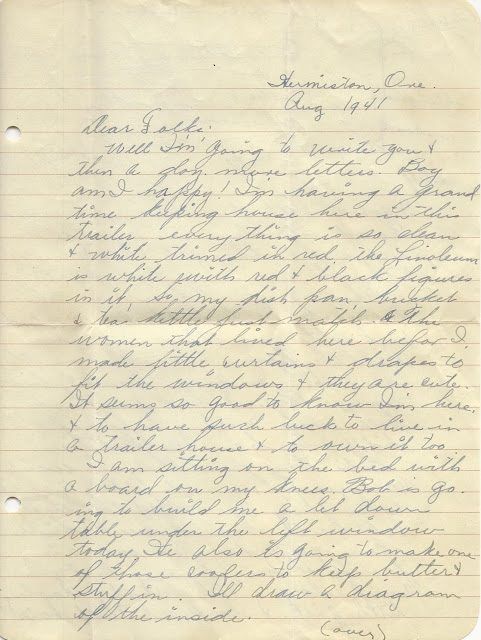 Hermiston, Ore.
Aug 1941
Dear Folks:
Well I'm going to write you &
then a doz. more letters. Boy
am I happy! I'm having a grand
time keeping house here in this
trailer, everything is so clean
& white trimed in red, the linoleum
is white with red & black figures
in it, so my dish pan, bucket
& tea kettle just match. & The
women that lived here befor I,
made little curtains & drapes to
fit the windows & they are cute.
It seems so good to know I'm here,
& to have such luck to live in
a trailer house & to own it too.
I am sitting on the bed with
a board on my knees. Bob is go-
ing to build me a let down
table under the left window
today. He also is going to make one
of those coolers to keep butter &
stuff in. I'll draw a diagram
of the inside.
(over)